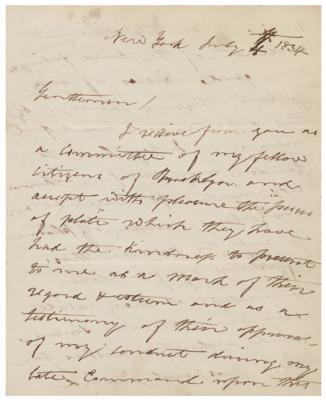 New York July 4 1834
Gentlemen,
I receive from you as
a committee of my fellow
citizens of Brooklyn and
accept with pleasure the piece
of plate which they have
had the kindness to present
to me as a mark of their
regard & esteem and as a
testimony of their approval
of my conduct during my
late Command upon this